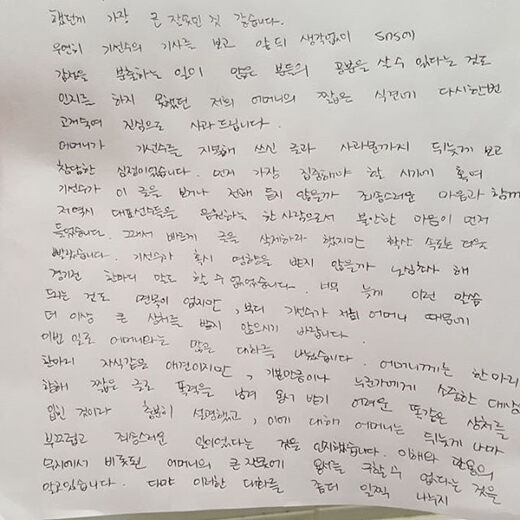 했던게 가장 큰 잘못인 것 같습니다.
우연히 기선수의 기사를 보고 앞뒤 생각없이 SNS에
감정을 분출하는 일이 많은 분들의 공분을 살 수 있다는 것도
인지를 하지 못했던 저희 어머니의 짧은 식견에 다시한번
고개숙여 진심으로 사과드립니다.
어머니가 기선수를 지목해 쓰신 글과 사과문까지 뒤늦게 보고
참담한 심정이었습니다. 먼저 가장 집중해야 할 시기에 혹여
기선수가 이 글을 보거나 전해 듣지 않을까 죄송스러운 마음과 함께
저역시 대표선수들을 응원하는 한사람으로서 불안한 마음이 먼저
들었습니다. 그래서 바르게 글을 삭제하라 했지만 확산 속도는 더욱
빨랐습니다. 기선수가 혹시 영향을 받지 않을까 노심초사 해
경기전 한마디 말도 할 수 없었습니다. 너무 늦게 이런 말씀
드리는 것도 면목이 없지만, 부디 기선수가 저희 어머니 때문에
더 이상 큰 상처를 받지 않으시기 바랍니다.
이번 일로 어머니와는 많은 대화를 나눴습니다. 어머니께는 한마리
한마리 자식같은 애견이지만, 기본만큼이나 누군가에게 소중한 대상
향해 짧은 글로 폭력을 남겨 용서 받기 어려운 똑같은 상처를
입힌 것이라 충분히 설명했고, 이에 대해 어머니는 뒤늦게 나마
부끄럽고 죄송스러운 일이었다는 것을 인지했습니다. 이해와 관용의
무지에서 비롯된 어머니의 큰 잘못에 용서를 구할 수 없다는 것을
알고있습니다. 다만 이러한 대화를 좀더 일찍 나누지